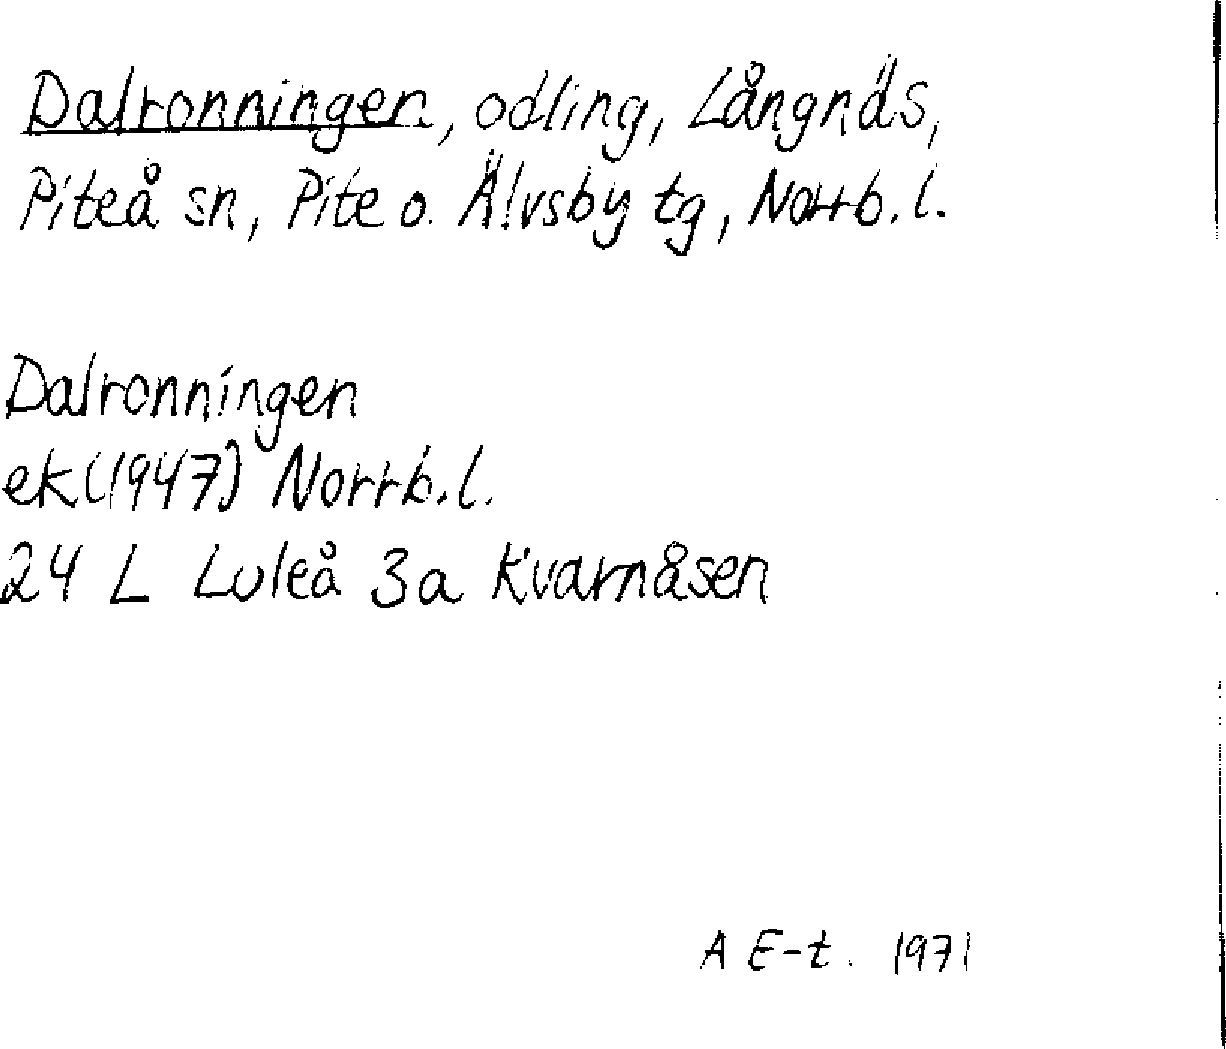 Dalronningen, odling, Långnäs,
Piteå sn, Pite o. Älvsby tg, Norrb. l.
Dalronningen
ek (1947) Norrb. l.
24 L Luleå 3a Kvarnåsen
A E-t. 1971